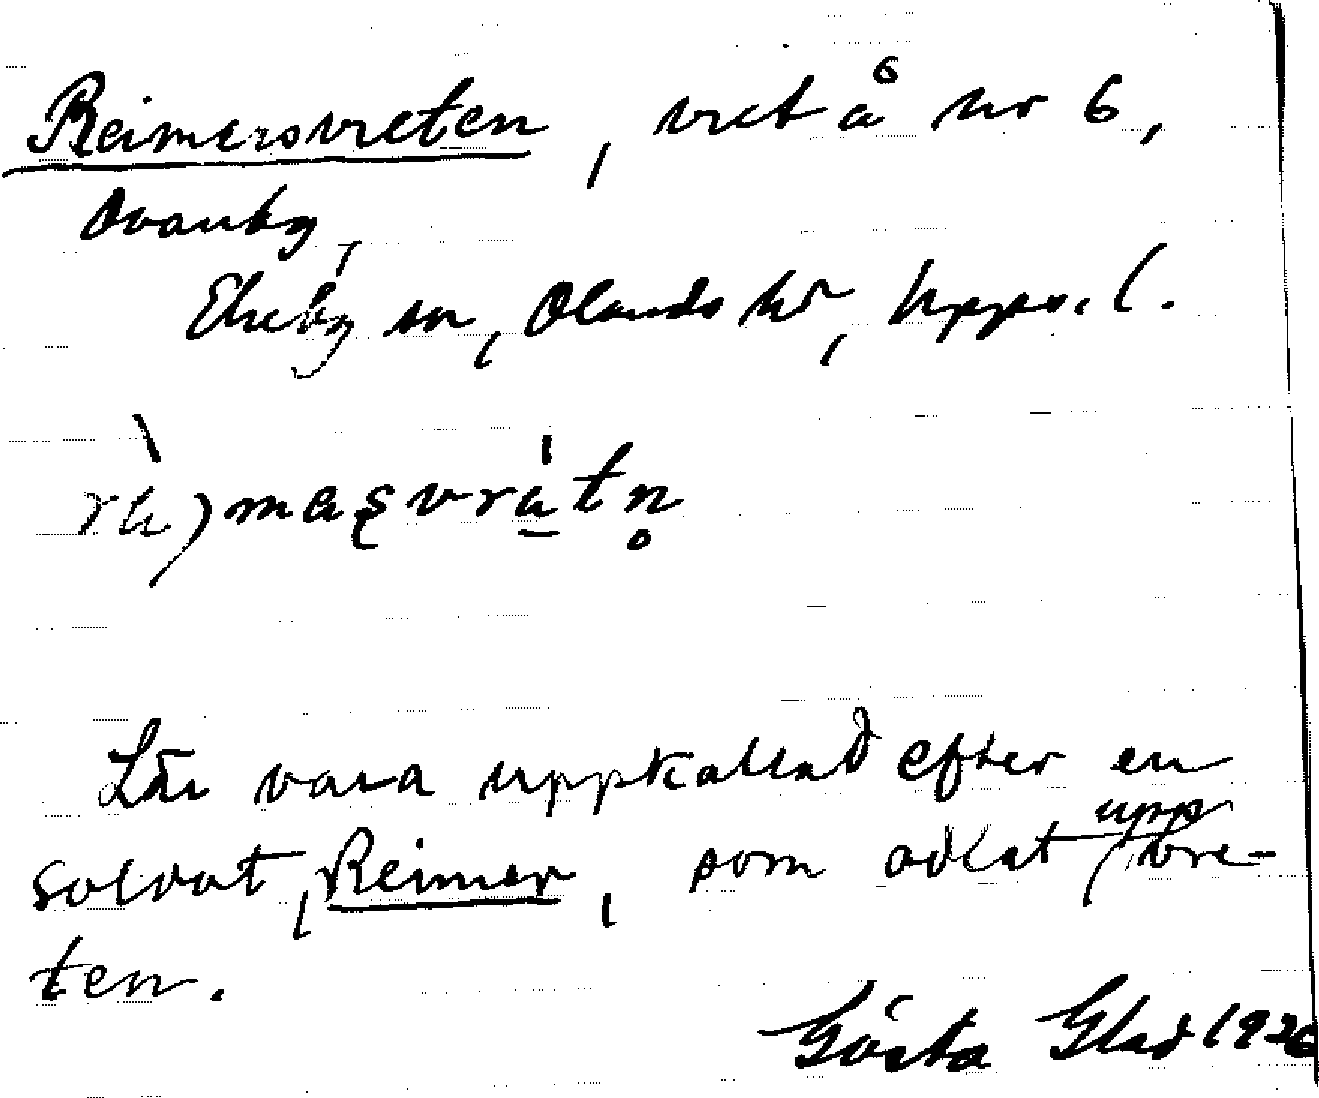 Reimersvreten, vret å nr 6,
Ovanby,
Ekeby sn, Olands hd, Upps. l.
Lär vara uppkallad efter en
soldat, Reimer, som odlat upp vre-
ten.
Gösta Glad 1926